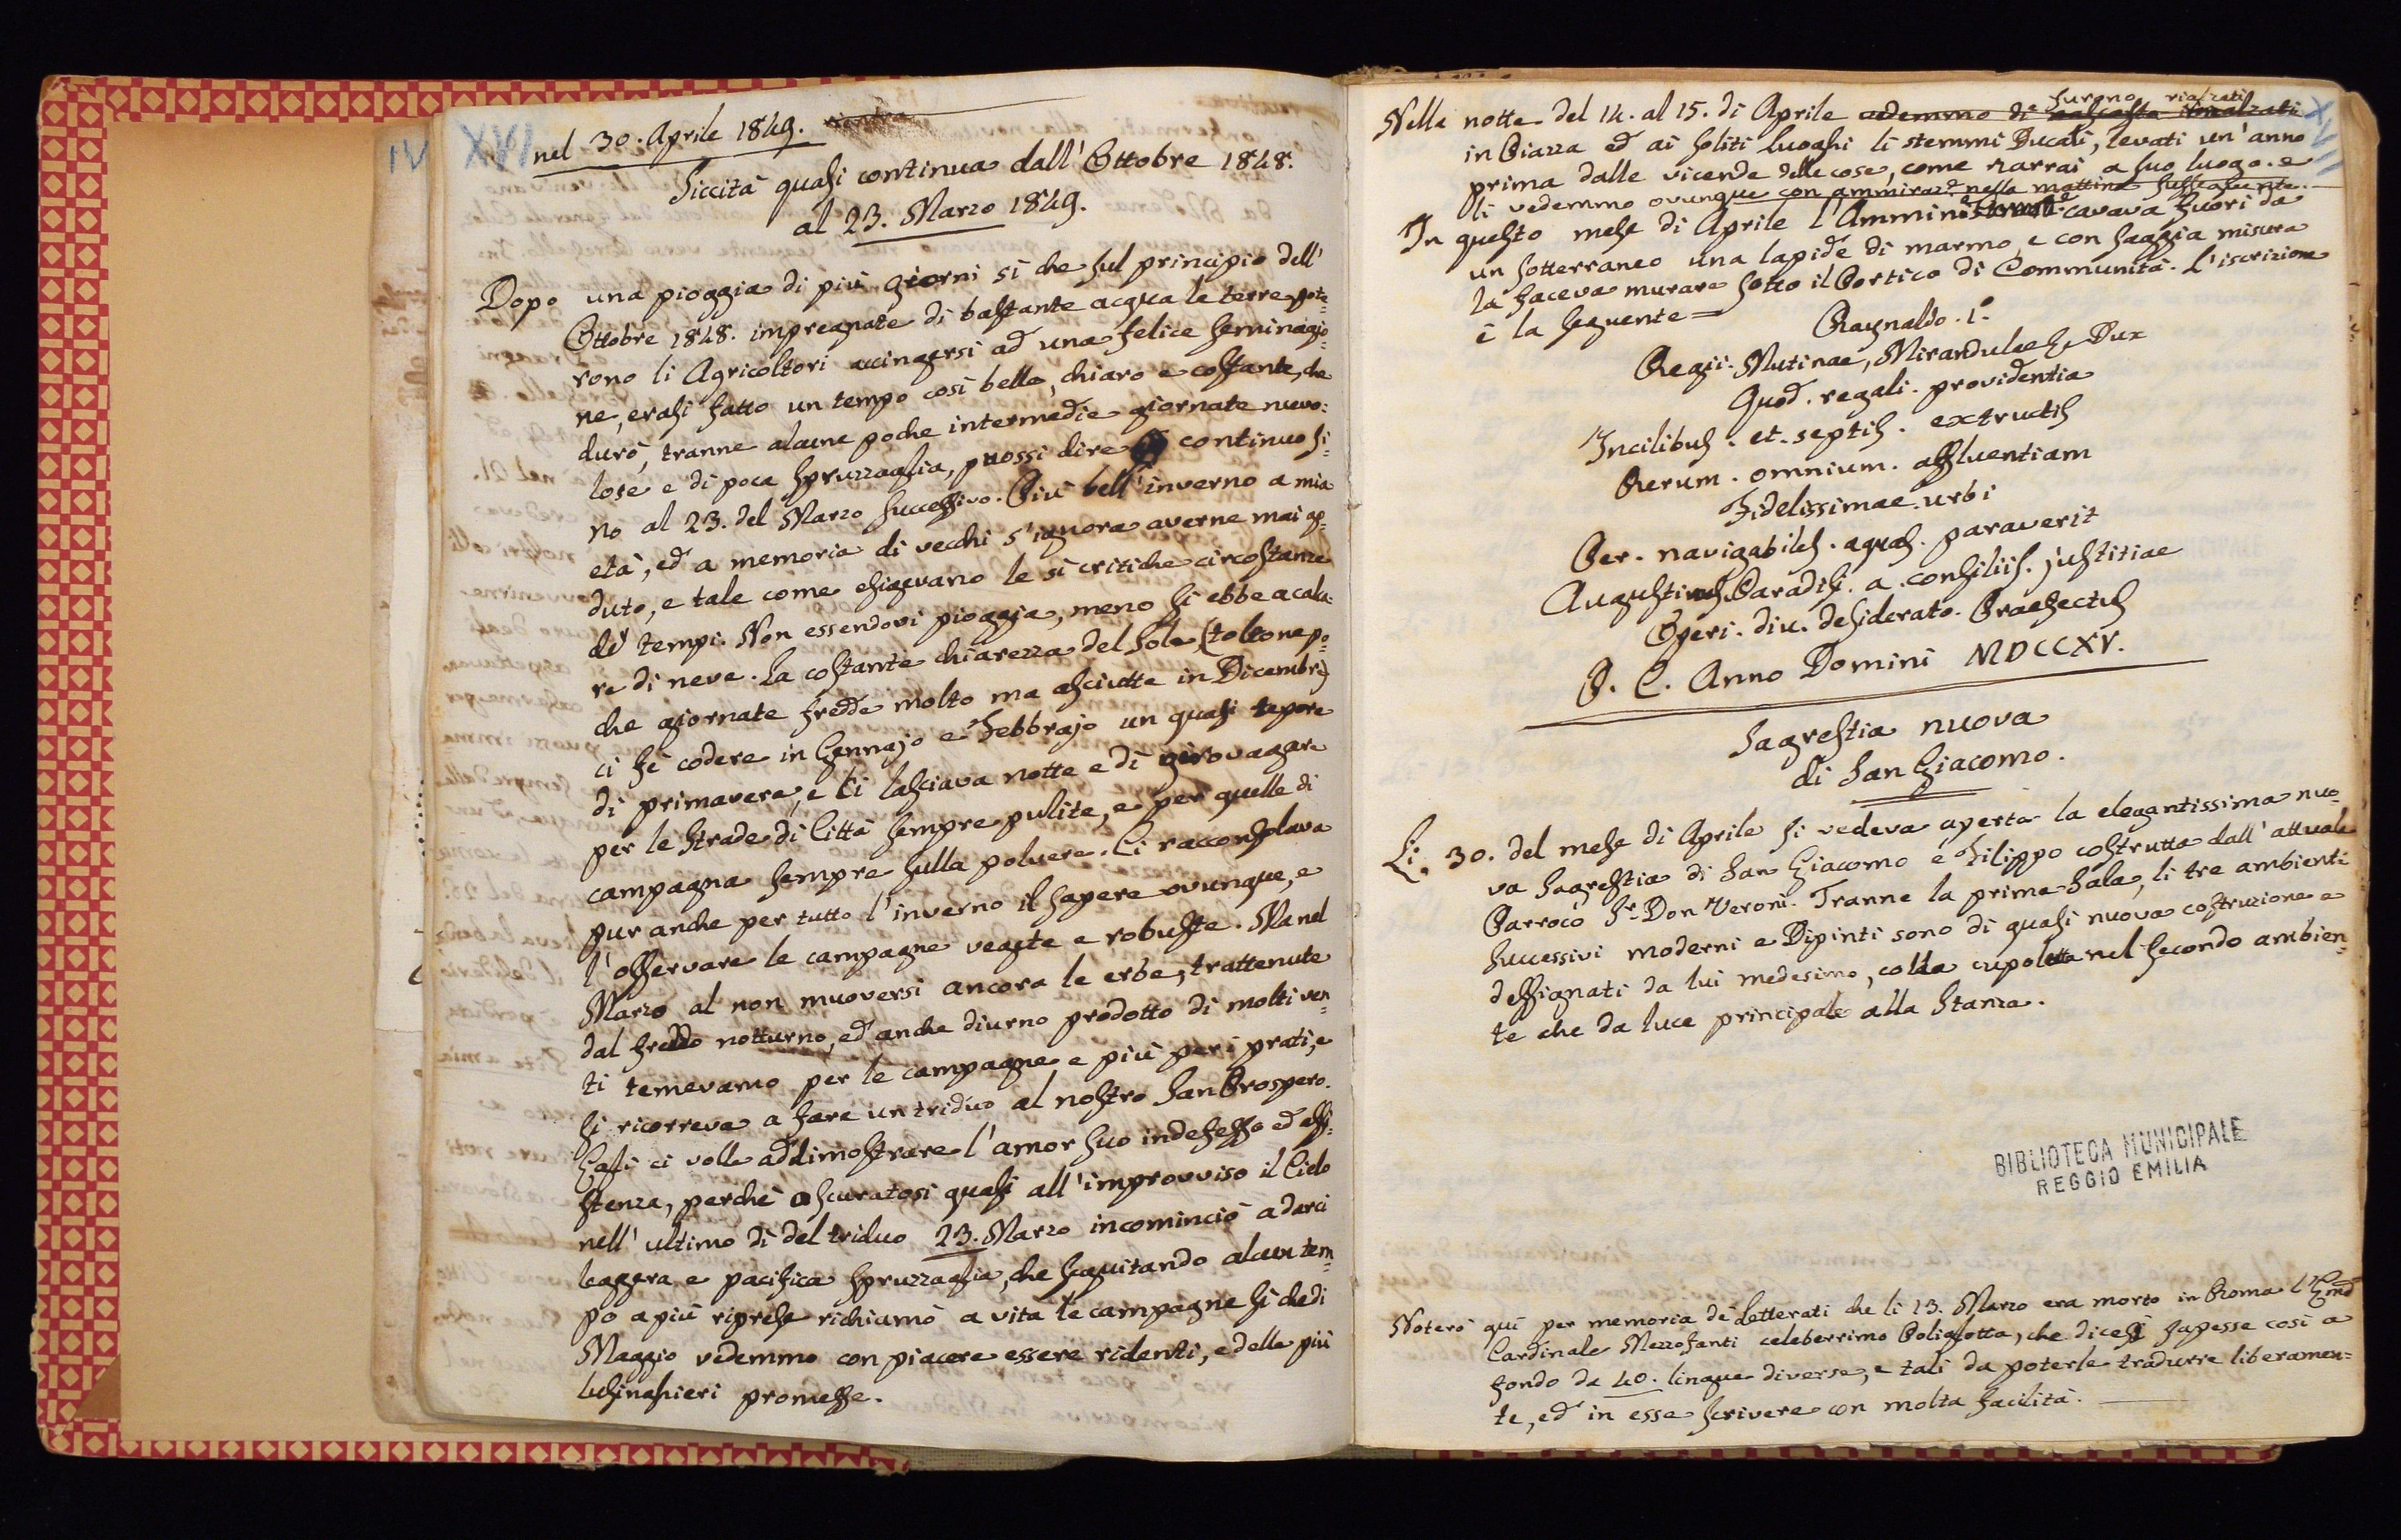 IV XVI
nel 30. Aprile 1849. rientra
Siccità quasi continua dall' Ottobre 1848.
al 23. Marzo 1849.
Dopo una pioggia di più giorni sì che sul principio dell'
Ottobre 1848. impregnate di bastante acqua le terre pote=
rono li Agricoltori accingersi ad una felice seminagio=
ne, erasi fatto un tempo così bello, chiaro e costante, che
durò, tranne alcune poche intermedie giornate nuvo=
lose e di poca spruzzaglia, puossi dire continuo si=
no al 23. del Marzo successivo. Più bell' inverno a mia
età, ed a memoria di vecchi s'ignora averne mai go=
duto, e tale come esigevano le sì critiche circostanze
de' tempi. Non essendovi pioggia, meno si ebbe a cala=
re di neve. La costante chiarezza del Sole, (toltone po=
che giornate fredde molto ma asciutte in Dicembre)
ci fè godere in Gennajo e Febbrajo un quasi tepore
di primavera, e li lasciava notte e dì girovagare
per le Strade di Città sempre pulite, e per quelle di
campagna sempre sulla polvere. Ci racconsolava
pur anche per tutto l'inverno il sapere ovunque, e
l'osservare le campagne vegete e robuste. Ma nel
Marzo al non muoversi ancora le erbe, trattenute
dal freddo notturno, ed anche diurno prodotto di molti ven=
ti temevamo per le campagne e più per i prati, e
si ricorreva a fare un triduo al nostro San Prospero.
Egli ci volle addimostrare l'amor suo indefesso ed assi=
stenza, perchè oscuratosi quasi all'improvviso il Cielo
nell' ultimo dì del triduo 23. Marzo incominciò a darci
leggera e pacifica spruzzaglia, che seguitando alcun tem=
po a più riprese richiamò a vita le campagne sì che di
Maggio vedemmo con piacere essere ridenti, e delle più
lusinghieri promesse.
XVII
furono rialzati
Nella notte del 14. al 15. di Aprile vedemmo di nascosto rinalzati
in Piazza ed ai soliti luoghi li stemmi Ducali, levati un' anno
prima dalle vicende delle cose, come narrai a suo luogo. e
li vedemmo ovunque con ammiraz.e nella mattina susseguente.
In questo mese di Aprile l'Ammin cavava fuori da
un sotterraneo una lapide di marmo, e con saggia misura
la faceva murare sotto il Portico di Communità. L'iscrizione
è la seguente =
Raynaldo. I.º
Regii. Mutinae, Mirandulae &. Dux
Quod. regali. providentia
Incilibus. et. septis. extructis
Rerum. omnium. affluentiam
Fidelissimae. urbi
Per. navigabiles. aquas. paraverit
Augustinus. Paradisi. a. consiliis. justitiae
Operi. diu. desiderato. Praefectus
P. C. Anno Domini MDCCXV.
Sagrestia nuova
di San Giacomo.
Li. 30. del mese di Aprile si vedeva aperta la elegantissima nuo=
va Sagrestia di San Giacomo e Filippo costrutta dall' attuale
Parroco Sr. Don Veroni. Tranne la prima Sala, li tre ambienti
successivi moderni e Dipinti sono di quasi nuova costruzione e
dessignati da lui medesimo, colla cupoletta nel secondo ambien=
te che da luce principale alla Stanza.
BIBLIOTECA MUNICIPALE
REGGIO EMILIA
Noterò quì per memoria de' Letterati che li 13. Marzo era morto in Roma l'Emo
Cardinale Mezzofanti celeberrimo Poliglotta, che dicesi sapesse così a
fondo da 40. lingue diverse, e tali da poterle tradurre liberamen=
te, ed in esse scrivere con molta facilità.